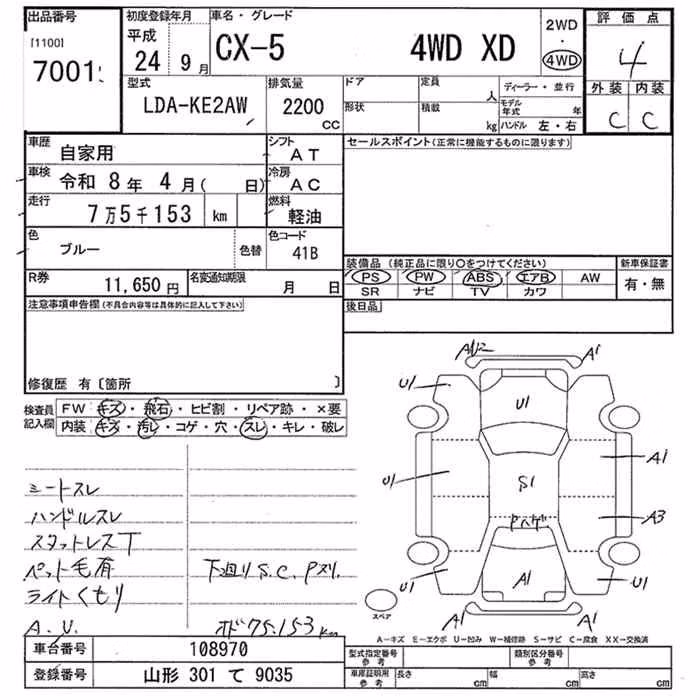 出品番号 初度登録年月 車名・グレード 評価点
[1100] 平成 2WD
7001 24 9月 CX-5 4WD XD ・ 4
4WD
外装 内装
型式 排気量 ドア 定員 人 ディーラー・並行
LDA-KE2AW 2200 CC 形状 積載 kg モデル年式 年 C C
ハンドル 左・右
車歴 自家用 シフト AT セールスポイント(正常に機能するものに限ります)
車検 令和 8年 4月( 日) 冷房 AC
走行 7万5千153 km 燃料 軽油
色 ブルー 色替 色コード 41B
装備品(純正品に限り○をつけてください) 新車保証書
R券 11,650円 名変通知期限 月 日 PS PW ABS エアB AW 有・無
SR ナビ TV カワ
注意事項申告欄(不具合内容等は具体的に記入して下さい) 後日品
修復歴 有〔箇所 〕
検査員記入欄 FW キズ・飛石・ヒビ割・リペア跡・×要
内装 キズ・汚レ・コゲ・穴・スレ・キレ・破レ
A1
U1 U1
A1
U1 S1
Pハゲ A3
A1
U1 U1
A1 A1
スペア
シートスレ
ハンドルスレ
スタットレスT
ペット毛有 下廻りS.C.Pヌリ.
ライトくもり
A.U. オド75.153km
A-キズ E-エクボ U-凹み W-補修跡 S-サビ C-腐食 XX-交換済
車台番号 108970 型式指定番号 参考 類別区分番号 参考
登録番号 山形 301 て 9035 車庫証明用 参考 長さ cm 幅 cm 高さ cm